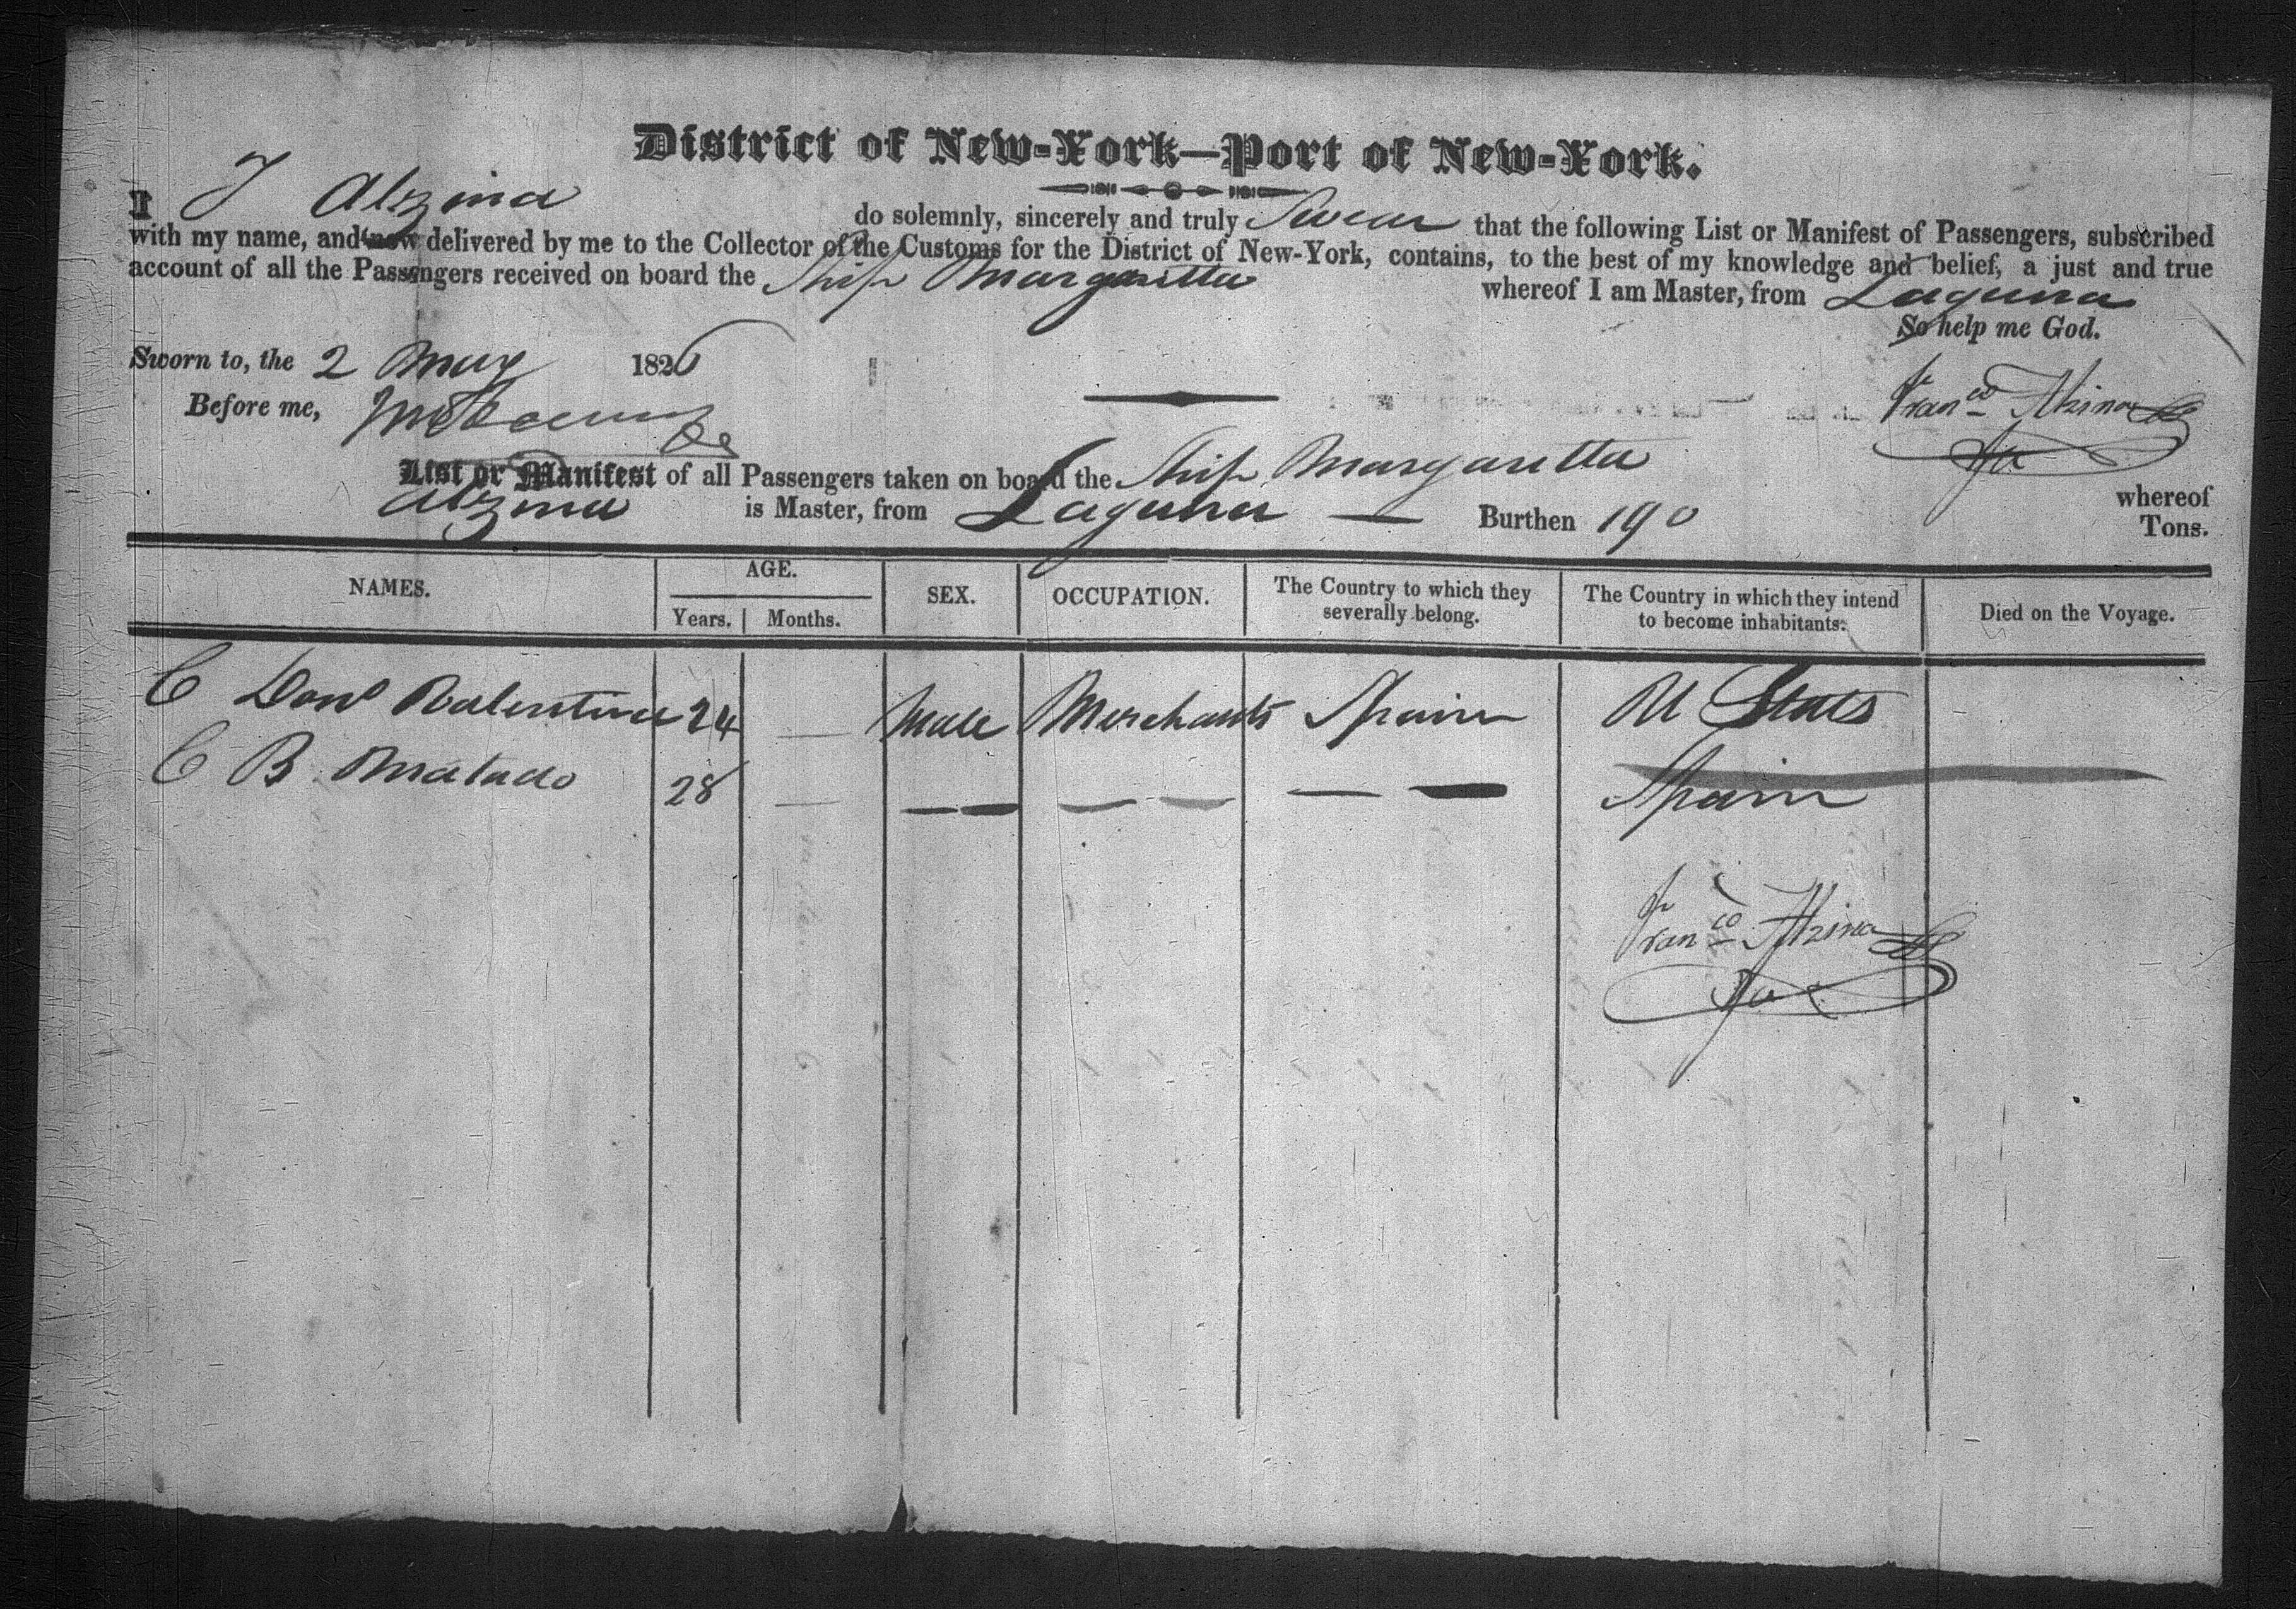 District of New-York—Port of New-York.
I J Alszina do solemnly, sincerely and truly Swear that the following List or Manifest of Passengers, subscribed
with my name, and now delivered by me to the Collector of the Customs for the District of New-York, contains, to the best of my knowledge and belief, a just and true
account of all the Passengers received on board the Ship Margaretta whereof I am Master, from Laguna
So help me God.
Sworn to, the 2 May 1826
Before me,
Franco Alzina
List or Manifest of all Passengers taken on board the Ship Margaretta whereof
Alszina is Master, from Laguna — Burthen 190 Tons.
NAMES. AGE. SEX. OCCUPATION. The Country to which they severally belong. The Country in which they intend to become inhabitants. Died on the Voyage.
Years. Months.
C Don Valentine 24 — Male Merchants Spain U States
C B Matado 28 — — — — — — — Spain
Franco Alzina